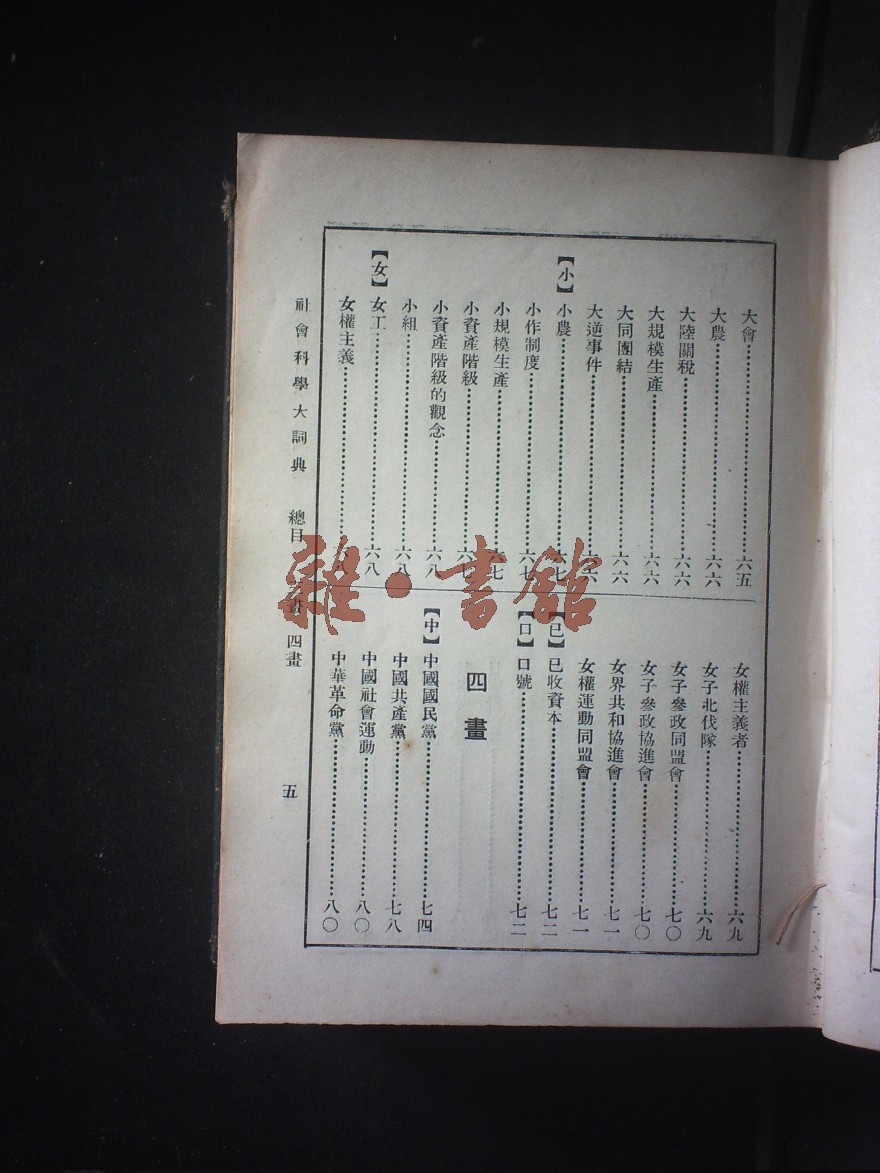 大會……六五
大農……六六
大陸關稅……六六
大規模生產……六六
大同團結……六六
大逆事件……六六
【小】小農……六七
小作制度……六七
小規模生產……六七
小資產階級……六七
小資產階級的觀念……六八
小組……六八
【女】女工……六八
女權主義……六八
女權主義者……六九
女子北伐隊……六九
女子參政同盟會……七〇
女子參政協進會……七〇
女界共和協進會……七一
女權運動同盟會……七一
【已】已收資本……七二
【口】口號……七二
四畫
【中】中國國民黨……七四
中國共產黨……七八
中國社會運動……八〇
中華革命黨……八〇
社會科學大詞典 總目 畫 四畫 五
雜·書館